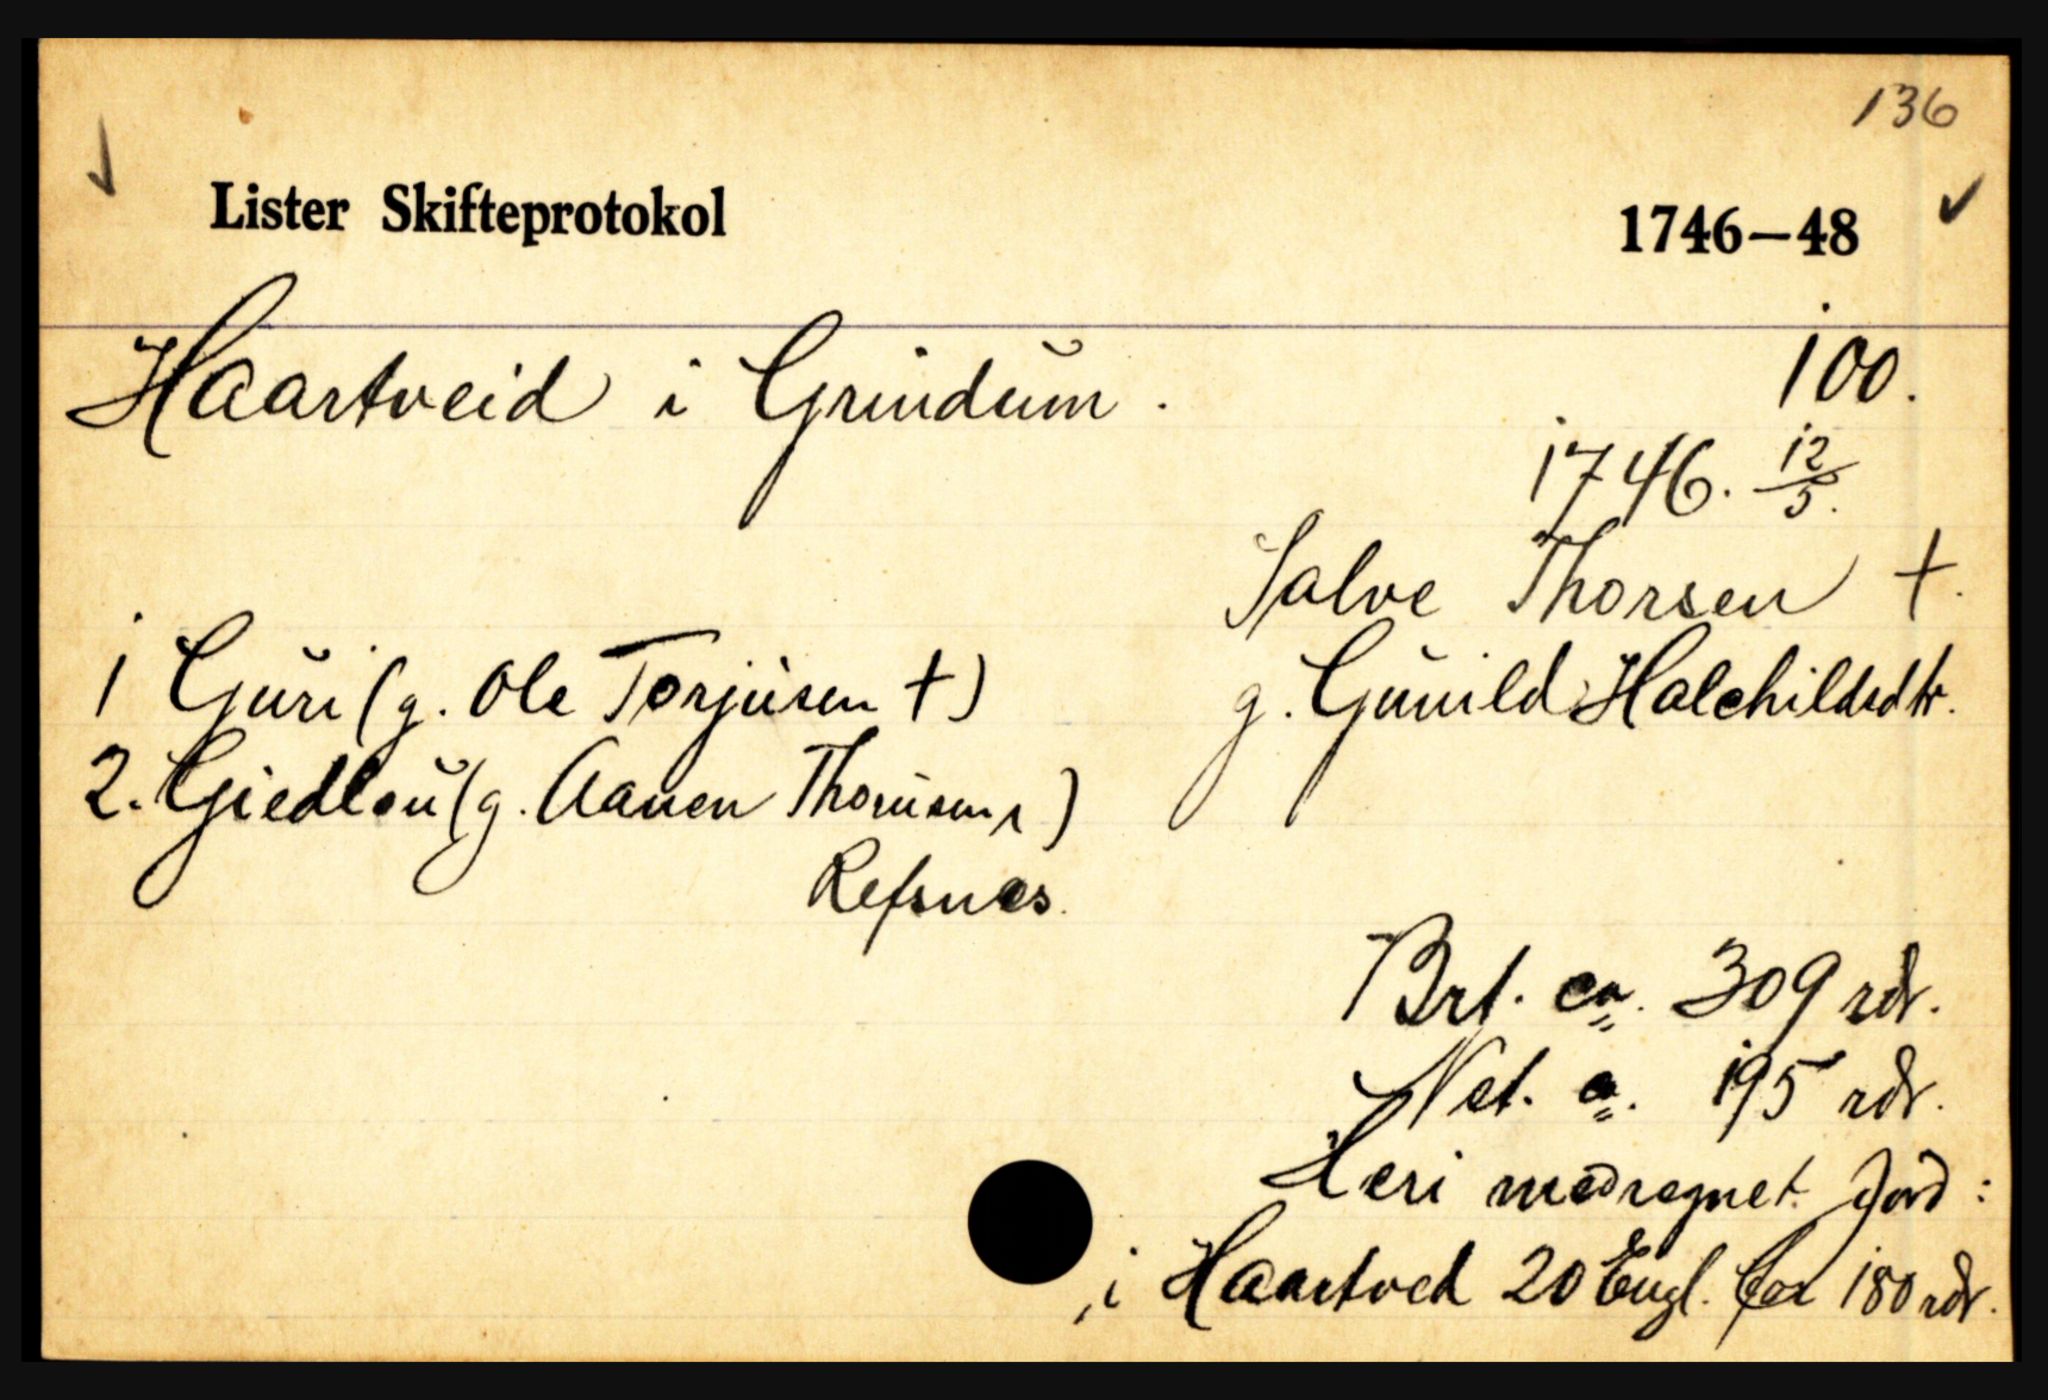 136
Lister Skifteprotokol 1746–48
Haartveid i Grindum. 100.
1746. 12/5.
Salve Thorsen †.
g. Gunild Halchildsdtr.
1 Guri (g. Ole Torjusen †)
2. Giedlou (g. Aanen Thorusen,)
Refsnes.
Brt. ca. 309 rdr.
Net. ca. 195 rdr.
Heri medregnet Jord:
i Haartved 20 Engl. for 180 rdr.